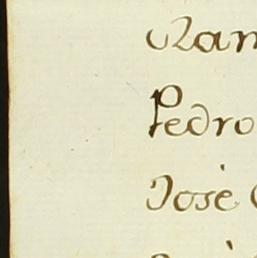 Ram
Pedro
José